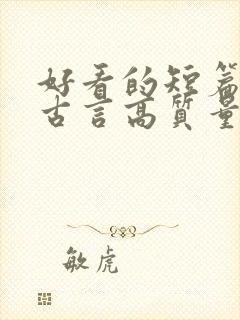 好看的短篇
古言高质量
敏虎